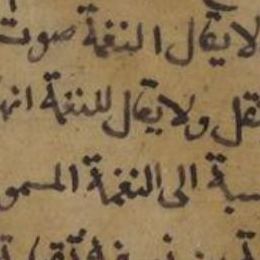 لا يقال النغمة صوت
ثقل ولا يقال للنغمة انها
سبة الى النغمة المسمو